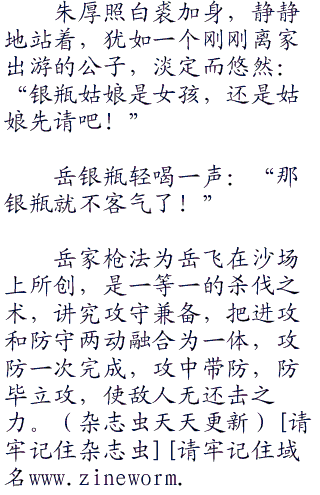 朱厚照白裘加身，静静
地站着，犹如一个刚刚离家
出游的公子，淡定而悠然：
“银瓶姑娘是女孩，还是姑
娘先请吧！”
岳银瓶轻喝一声：“那
银瓶就不客气了！”
岳家枪法为岳飞在沙场
上所创，是一等一的杀伐之
术，讲究攻守兼备，把进攻
和防守两动融合为一体，攻
防一次完成，攻中带防，防
毕立攻，使敌人无还击之
力。（杂志虫天天更新）[请
牢记住杂志虫][请牢记住域
名www.zineworm.